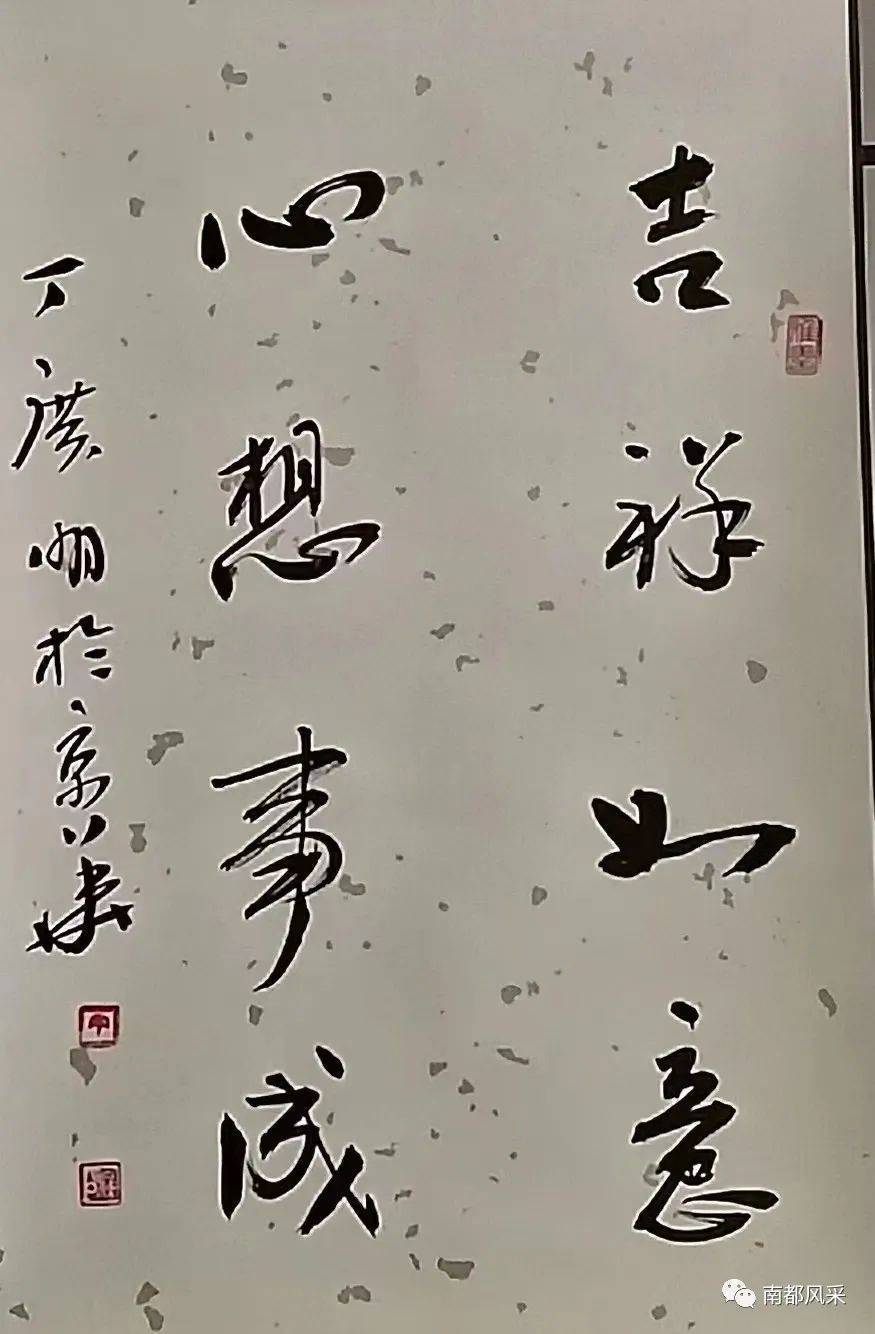 吉祥如意
心想事成
丁广明於京华
南都风采